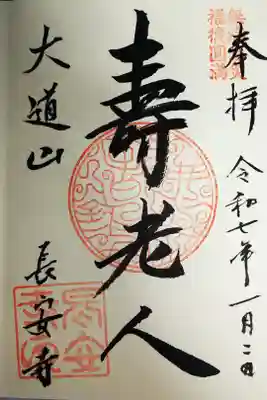 奉拝
令和七年一月二日
壽老人
大道山
長安寺